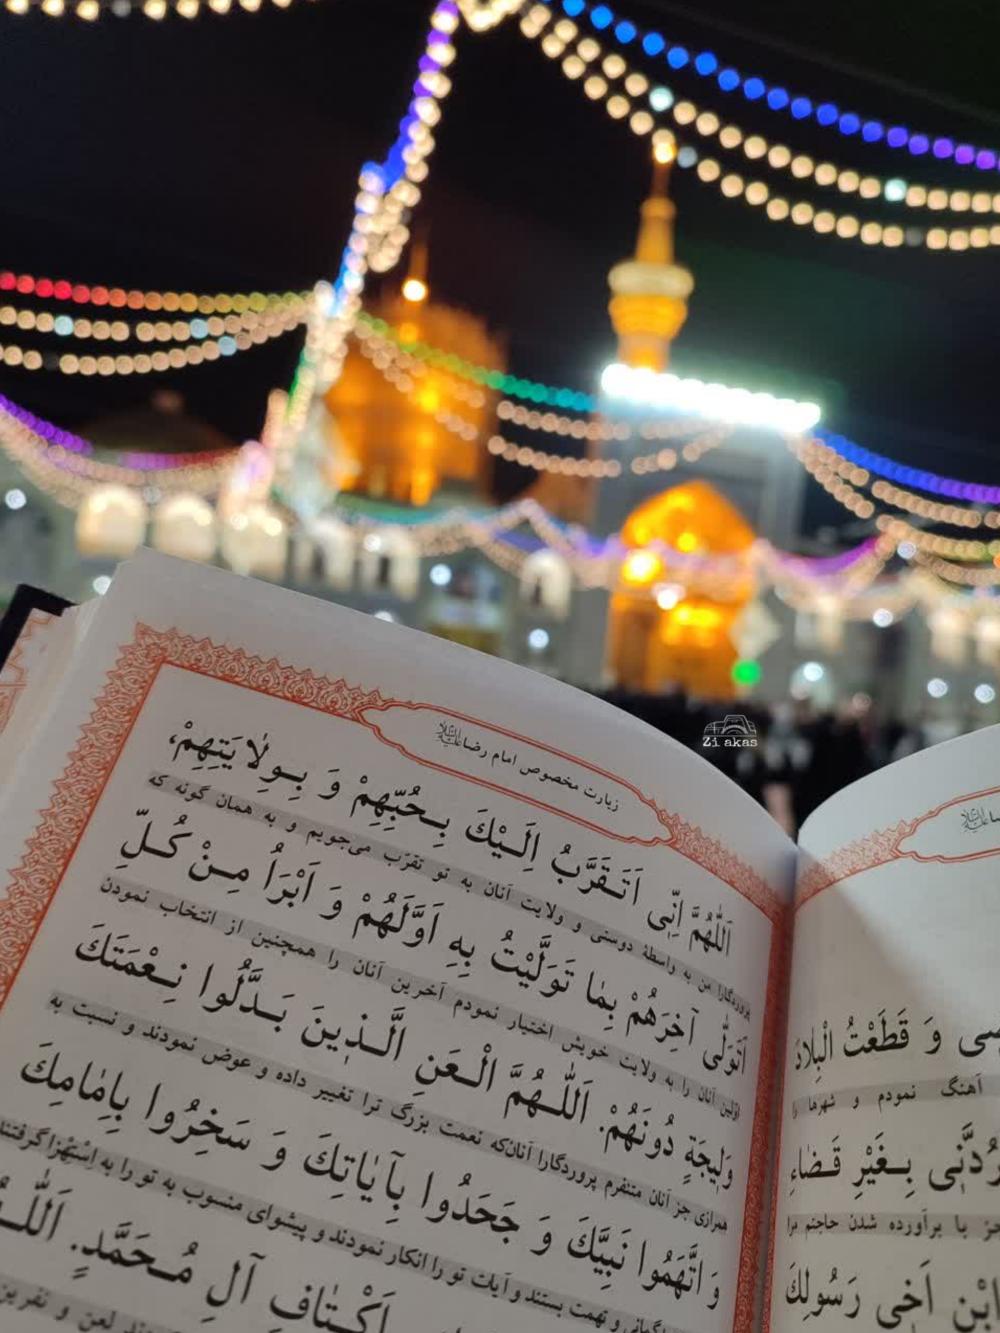 زیارت مخصوص امام رضا علیه السلام
اَللّٰهُمَّ اِنّی اَتَقَرَّبُ اِلَیْكَ بِحُبِّهِمْ وَ بِوِلٰایَتِهِمْ،
پروردگارا من به واسطهٔ دوستی و ولایت آنان به تو تقرّب می‌جویم و به همان گونه که
اَتَوَلّٰی آخِرَهُمْ بِمٰا تَوَلَّیْتُ بِهِ اَوَّلَهُمْ وَ اَبْرَأُ مِنْ كُلِّ
اوّلین آنان را به ولایت خویش اختیار نمودم آخرین آنان را همچنین از انتخاب نمودن
وَلیجَةٍ دُونَهُمْ. اَللّٰهُمَّ الْعَنِ الَّذینَ بَدَّلُوا نِعْمَتَكَ
همرازی جز آنان متنفرم پروردگارا آنان‌که نعمت بزرگ ترا تغییر داده و عوض نمودند و نسبت به
وَ اتَّهَمُوا نَبِیَّكَ وَ جَحَدُوا بِآیٰاتِكَ وَ سَخِرُوا بِاِمٰامِكَ
تهمت بستند و آیات تو را انکار نمودند و پیشوای منسوب به تو را به استهزا گرفتند
اَكْتٰافِ آلِ مُحَمَّدٍ.
لعن و نفرین
وَ قَطَعْتُ الْبِلادَ
آهنگ نمودم و شهرها را
بِغَیْرِ قَضٰاءِ
جز با برآورده شدن حاجتم مرا
ابْنِ اَخی رَسُولِكَ
Zi akas